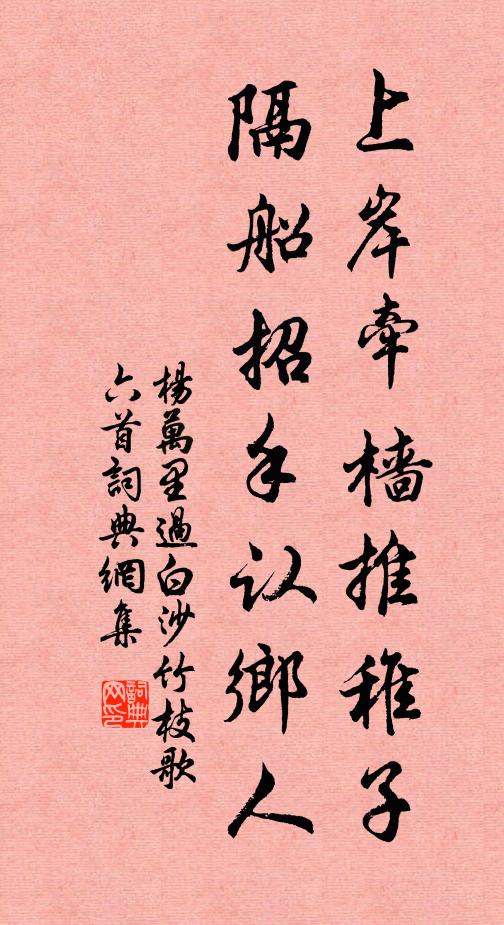 上岸牽樯推稚子
隔船招手认鄉人
楊萬里過白沙竹枝歌
六首詞典網集
詞典网印